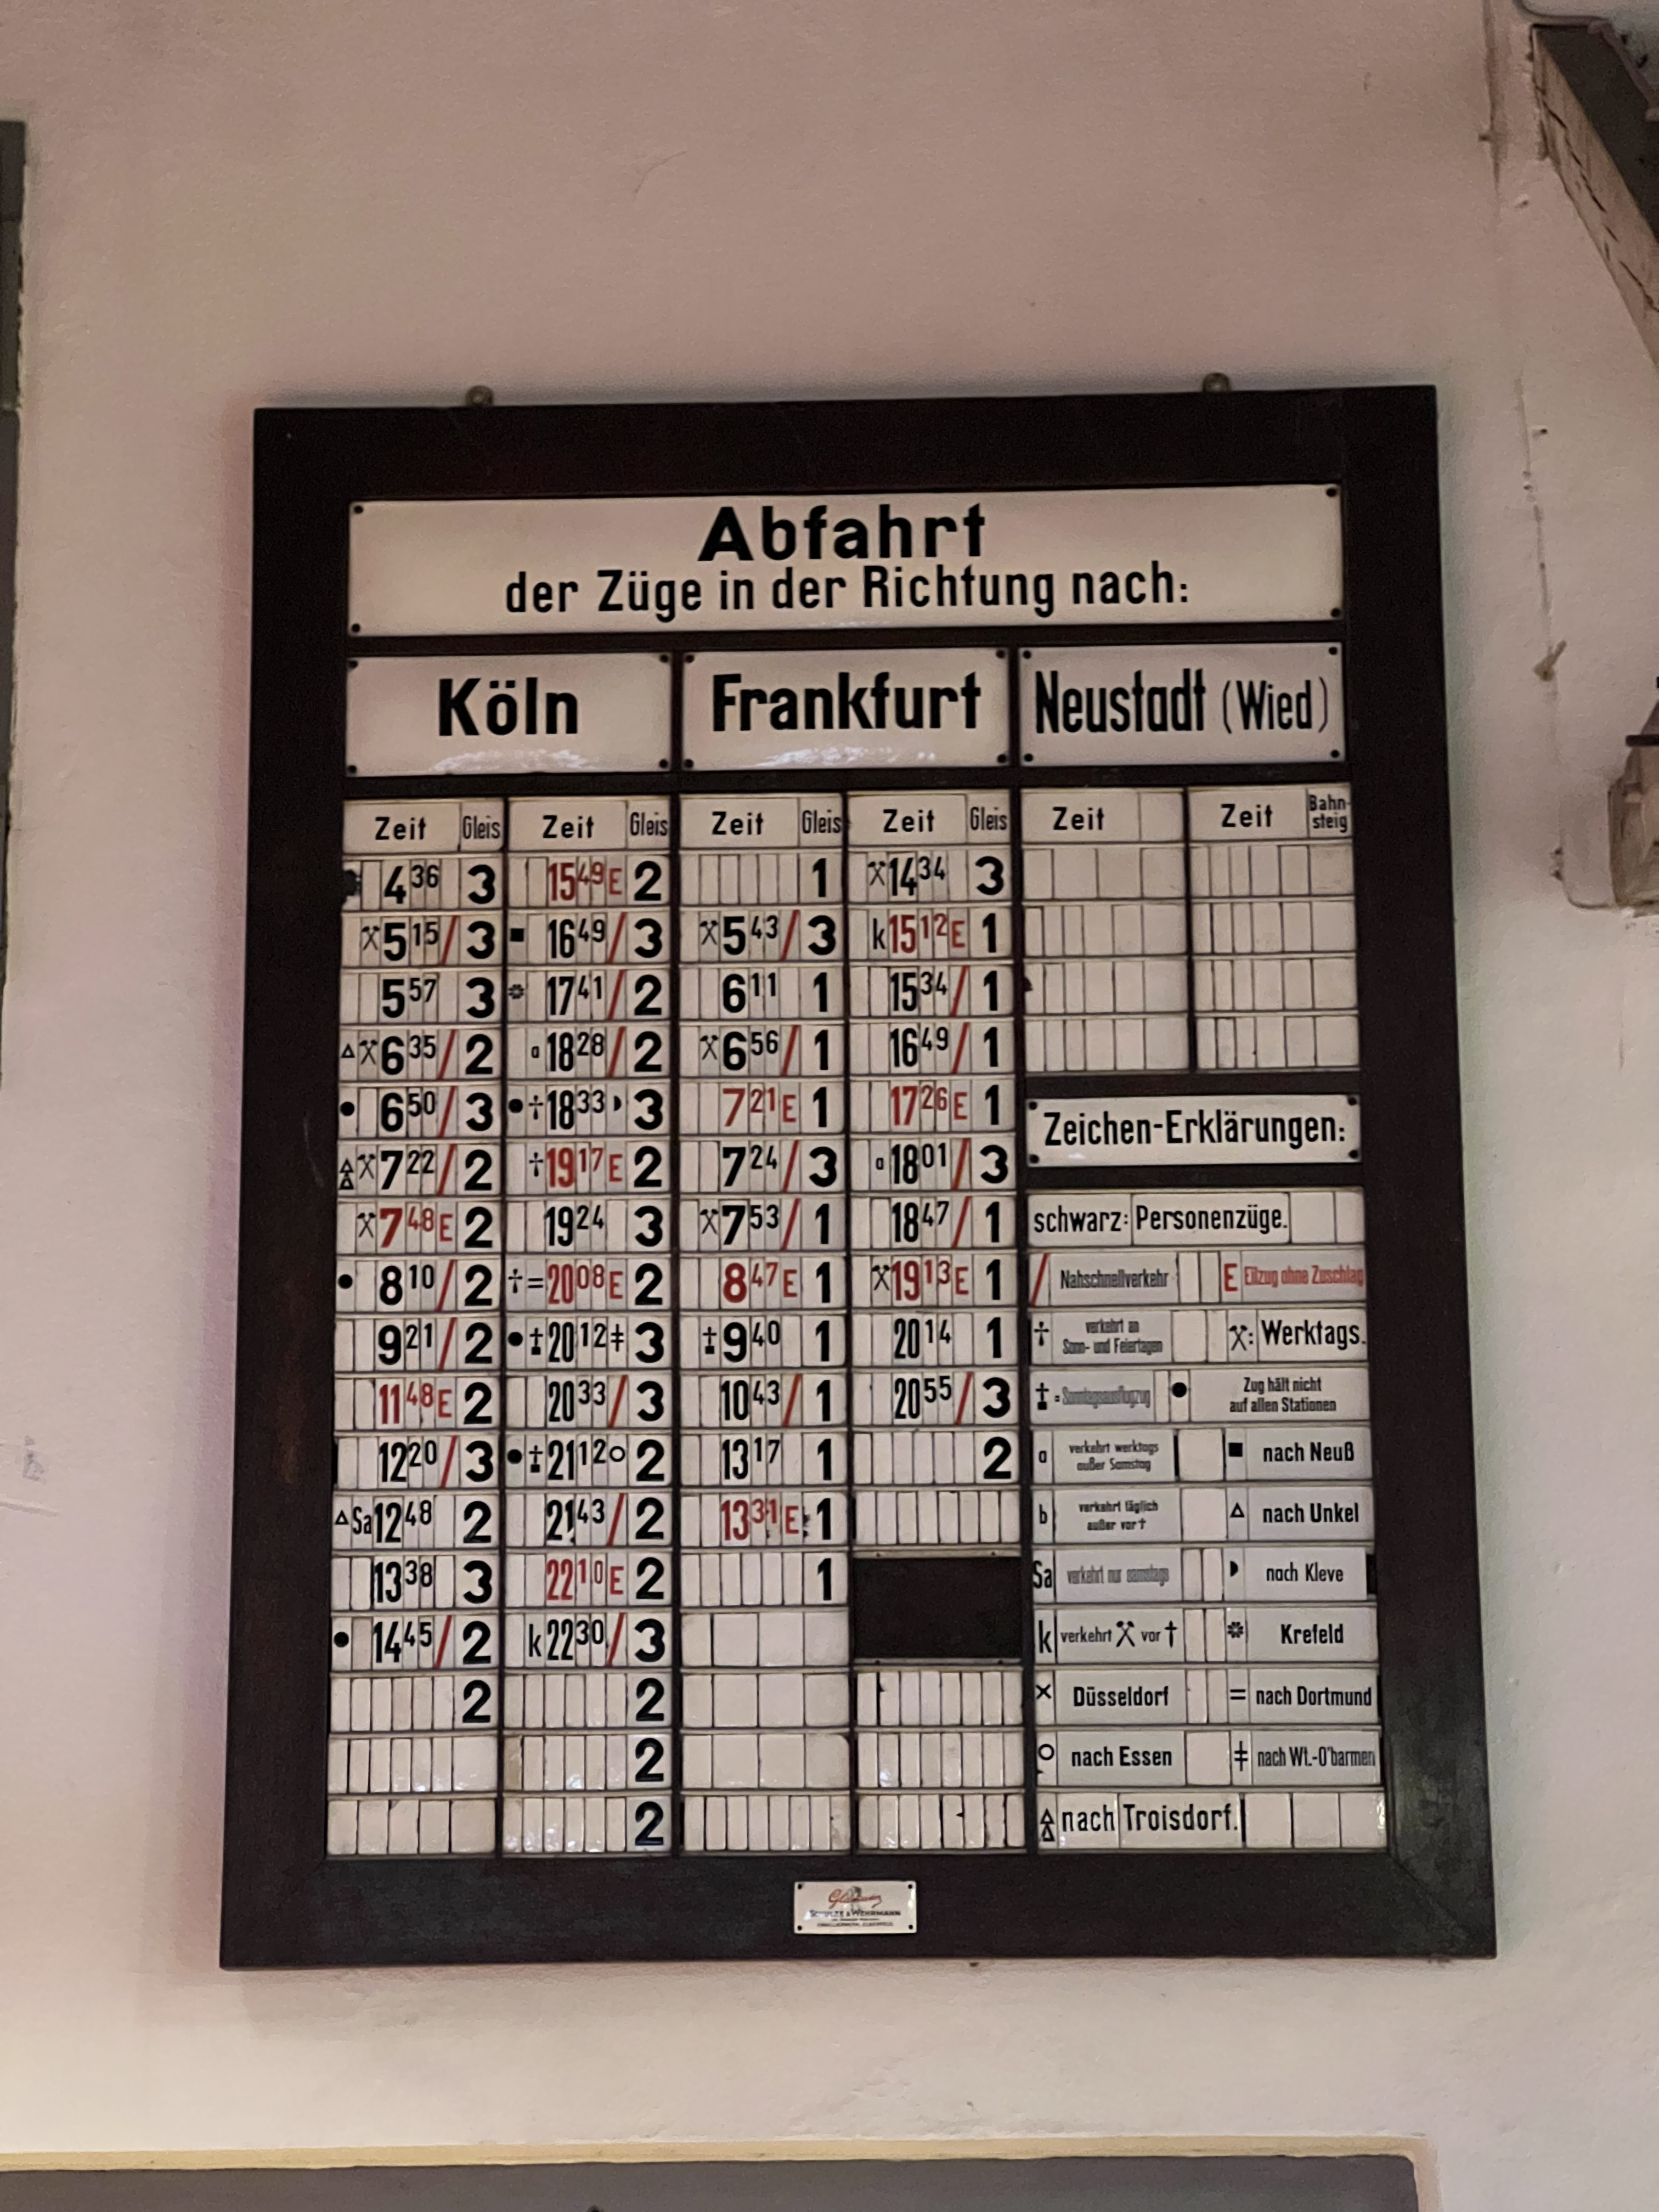 Abfahrt
der Züge in der Richtung nach:
Köln
Zeit Gleis Zeit Gleis
4 36 3 15 49 E 2
⚒ 5 15 / 3 ■ 16 49 / 3
5 57 3 ✽ 17 41 / 2
△ ⚒ 6 35 / 2 a 18 28 / 2
● 6 50 / 3 ● † 18 33 ◗ 3
△△ ⚒ 7 22 / 2 † 19 17 E 2
⚒ 7 48 E 2 19 24 3
● 8 10 / 2 † = 20 08 E 2
9 21 / 2 ● ‡ 20 12 ǂ 3
11 48 E 2 20 33 / 3
12 20 / 3 ● ‡ 21 12 ○ 2
△ Sa 12 48 2 21 43 / 2
13 38 3 22 10 E 2
● 14 45 / 2 k 22 30 / 3
2 2
2
2
Frankfurt
Zeit Gleis Zeit Gleis
1 ⚒ 14 34 3
⚒ 5 43 / 3 k 15 12 E 1
6 11 1 15 34 / 1
⚒ 6 56 / 1 16 49 / 1
7 21 E 1 17 26 E 1
7 24 / 3 a 18 01 / 3
⚒ 7 53 / 1 18 47 / 1
8 47 E 1 ⚒ 19 13 E 1
‡ 9 40 1 20 14 1
10 43 / 1 20 55 / 3
13 17 1 2
13 31 E 1
1
Neustadt (Wied)
Zeit Zeit Bahn-
steig
Zeichen-Erklärungen:
schwarz: Personenzüge.
/ Nahschnellverkehr E Eilzug ohne Zuschlag
† verkehrt an
Sonn- und Feiertagen
⚒: Werktags.
‡ = Sonntagsausflugzug
● Zug hält nicht
auf allen Stationen
a verkehrt werktags
außer Samstag
■ nach Neuß
b verkehrt täglich
außer vor †
△ nach Unkel
Sa verkehrt nur samstags ◗ nach Kleve
k verkehrt ⚒ vor † ✽ Krefeld
× Düsseldorf = nach Dortmund
○ nach Essen ǂ nach Wt.-O'barmen
△△ nach Troisdorf.
& WEHRMANN